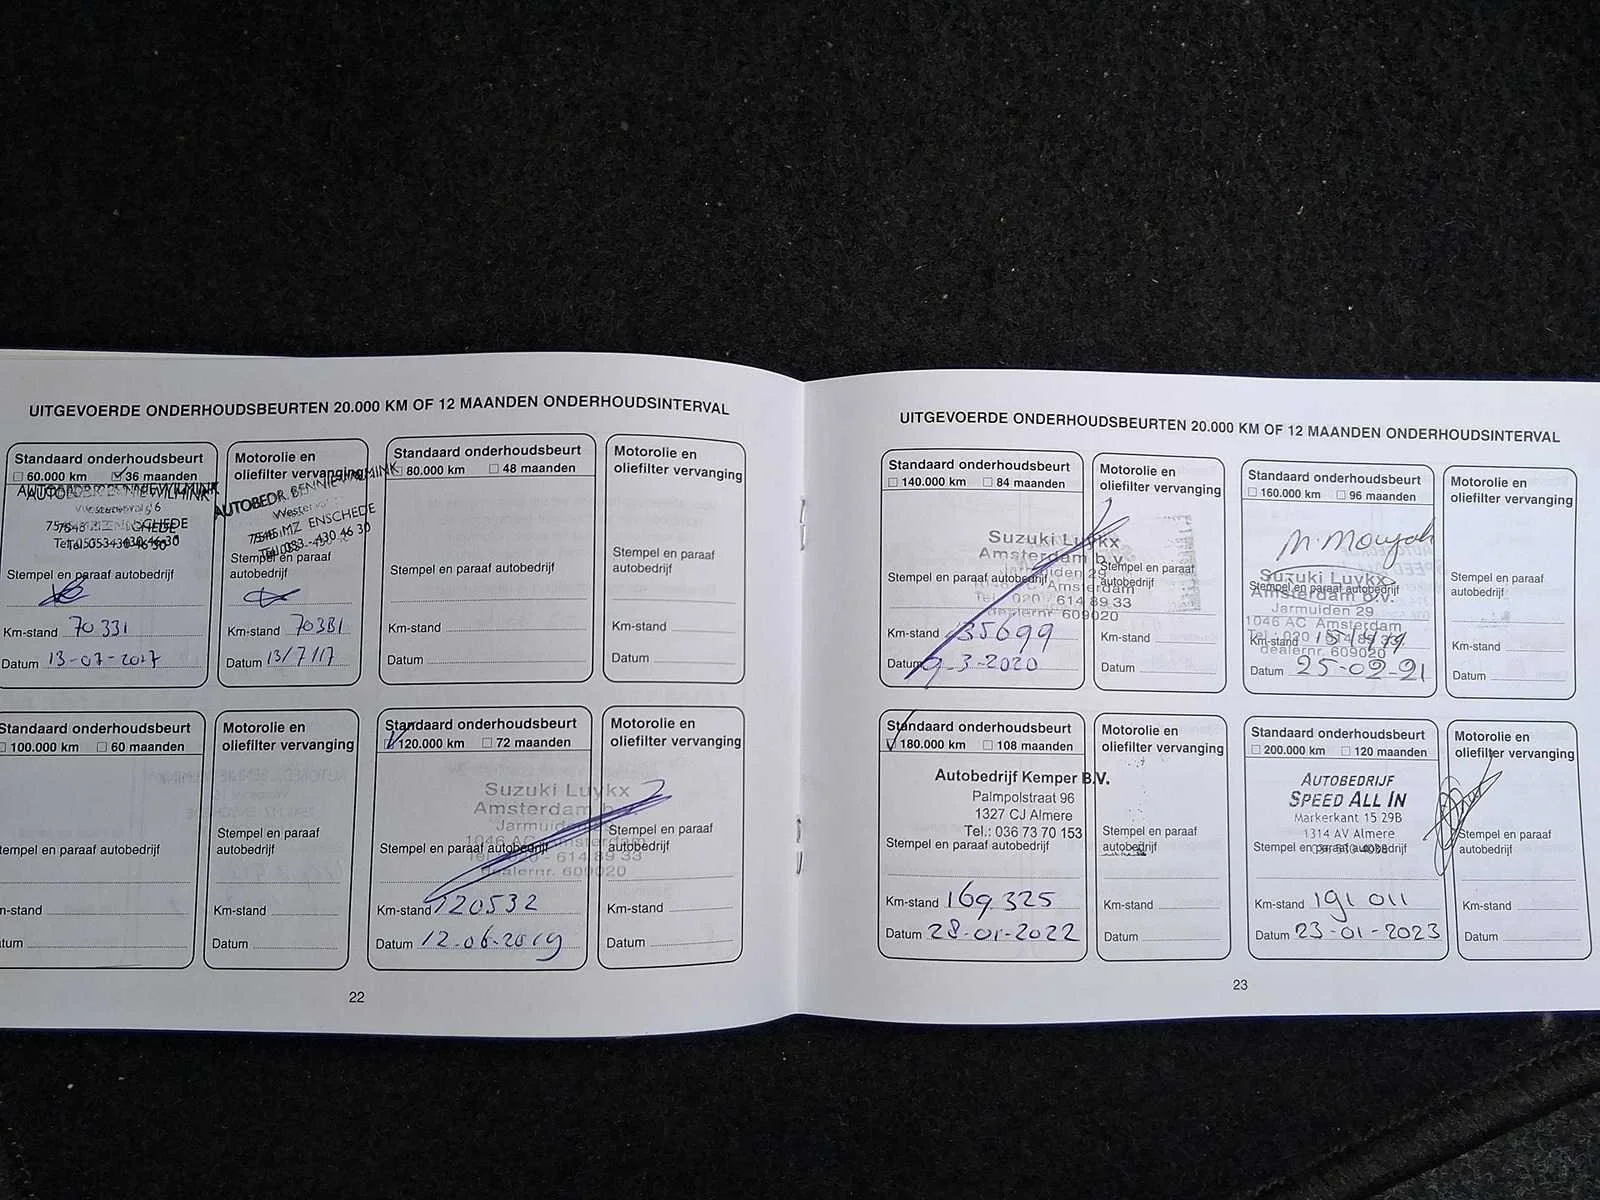 UITGEVOERDE ONDERHOUDSBEURTEN 20.000 KM OF 12 MAANDEN ONDERHOUDSINTERVAL
Standaard onderhoudsbeurt
60.000 km 36 maanden
AUTOBEDR. BENNIE WILMINK
ENSCHEDE
Stempel en paraaf autobedrijf
Km-stand 70331
Datum 13-07-2017
Motorolie en
oliefilter vervanging
AUTOBEDR. BENNIE WILMINK
7545 MZ ENSCHEDE
Stempel en paraaf
autobedrijf
Km-stand 70381
Datum 13/7/17
Standaard onderhoudsbeurt
80.000 km 48 maanden
Stempel en paraaf autobedrijf
Km-stand
Datum
Motorolie en
oliefilter vervanging
Stempel en paraaf
autobedrijf
Km-stand
Datum
Standaard onderhoudsbeurt
100.000 km 60 maanden
tempel en paraaf autobedrijf
m-stand
tum
Motorolie en
oliefilter vervanging
Stempel en paraaf
autobedrijf
Km-stand
Datum
Standaard onderhoudsbeurt
120.000 km 72 maanden
Suzuki Luykx
Amsterdam b.v.
Jarmuiden
1046 AC Amsterdam
Tel. 020 - 614 89 33
dealernr. 609020
Stempel en paraaf autobedrijf
Km-stand 120532
Datum 12-06-2019
Motorolie en
oliefilter vervanging
Stempel en paraaf
autobedrijf
Km-stand
Datum
22
UITGEVOERDE ONDERHOUDSBEURTEN 20.000 KM OF 12 MAANDEN ONDERHOUDSINTERVAL
Standaard onderhoudsbeurt
140.000 km 84 maanden
Suzuki Luykx
Amsterdam b.v.
Jarmuiden 29
1046 AC Amsterdam
Tel. 020 - 614 89 33
dealernr. 609020
Stempel en paraaf autobedrijf
Km-stand 135699
Datum 9-3-2020
Motorolie en
oliefilter vervanging
Stempel en paraaf
autobedrijf
Km-stand
Datum
Standaard onderhoudsbeurt
160.000 km 96 maanden
Suzuki Luykx
Amsterdam b.v.
Jarmuiden 29
1046 AC Amsterdam
Tel. 020 - 614 89 33
dealernr. 609020
Stempel en paraaf autobedrijf
Km-stand
Datum 25-02-21
Motorolie en
oliefilter vervanging
Stempel en paraaf
autobedrijf
Km-stand
Datum
Standaard onderhoudsbeurt
180.000 km 108 maanden
Autobedrijf Kemper B.V.
Palmpolstraat 96
1327 CJ Almere
Tel.: 036 73 70 153
Stempel en paraaf autobedrijf
Km-stand 169325
Datum 28-01-2022
Motorolie en
oliefilter vervanging
Stempel en paraaf
autobedrijf
Km-stand
Datum
Standaard onderhoudsbeurt
200.000 km 120 maanden
AUTOBEDRIJF
SPEED ALL IN
Markerkant 15 29B
1314 AV Almere
Stempel en paraaf autobedrijf
Km-stand 191 011
Datum 23-01-2023
Motorolie en
oliefilter vervanging
Stempel en paraaf
autobedrijf
Km-stand
Datum
23